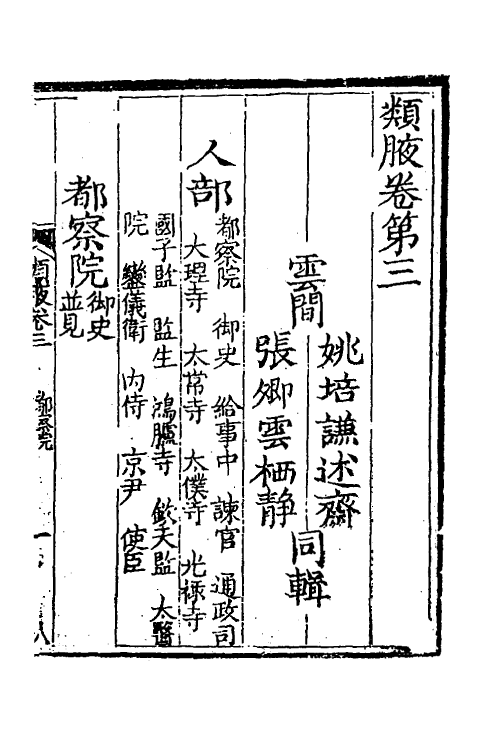 類腋卷第三
雲間
姚培謙述齋
張卿雲栖静
同輯
人部
都察院 御史 給事中 諫官 通政司
大理寺 太常寺 太僕寺 光祿寺
國子監 監生 鴻臚寺 欽天監 太醫
院 鑾儀衛 内侍 京尹 使臣
都察院 御史
並見
類腋卷三 都察院 一